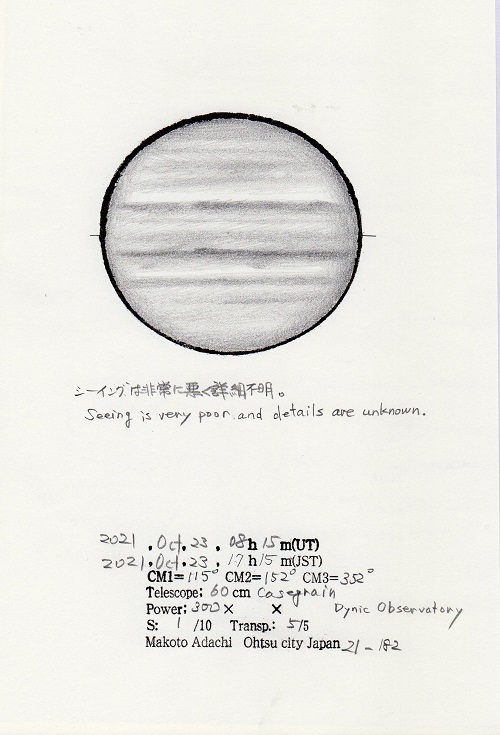 シーイングは非常に悪く詳細不明。
Seeing is very poor and details are unknown.
2021 . Oct. 23 . 08 h 15 m(UT)
2021 . Oct. 23 . 17 h 15 m(JST)
CM1= 115° CM2= 152° CM3= 352°
Telescope: 60 cm Casegrain
Power: 300 × × Dynic Observatory
S: 1 /10 Transp.: 5/5
Makoto Adachi Ohtsu city Japan 21-182